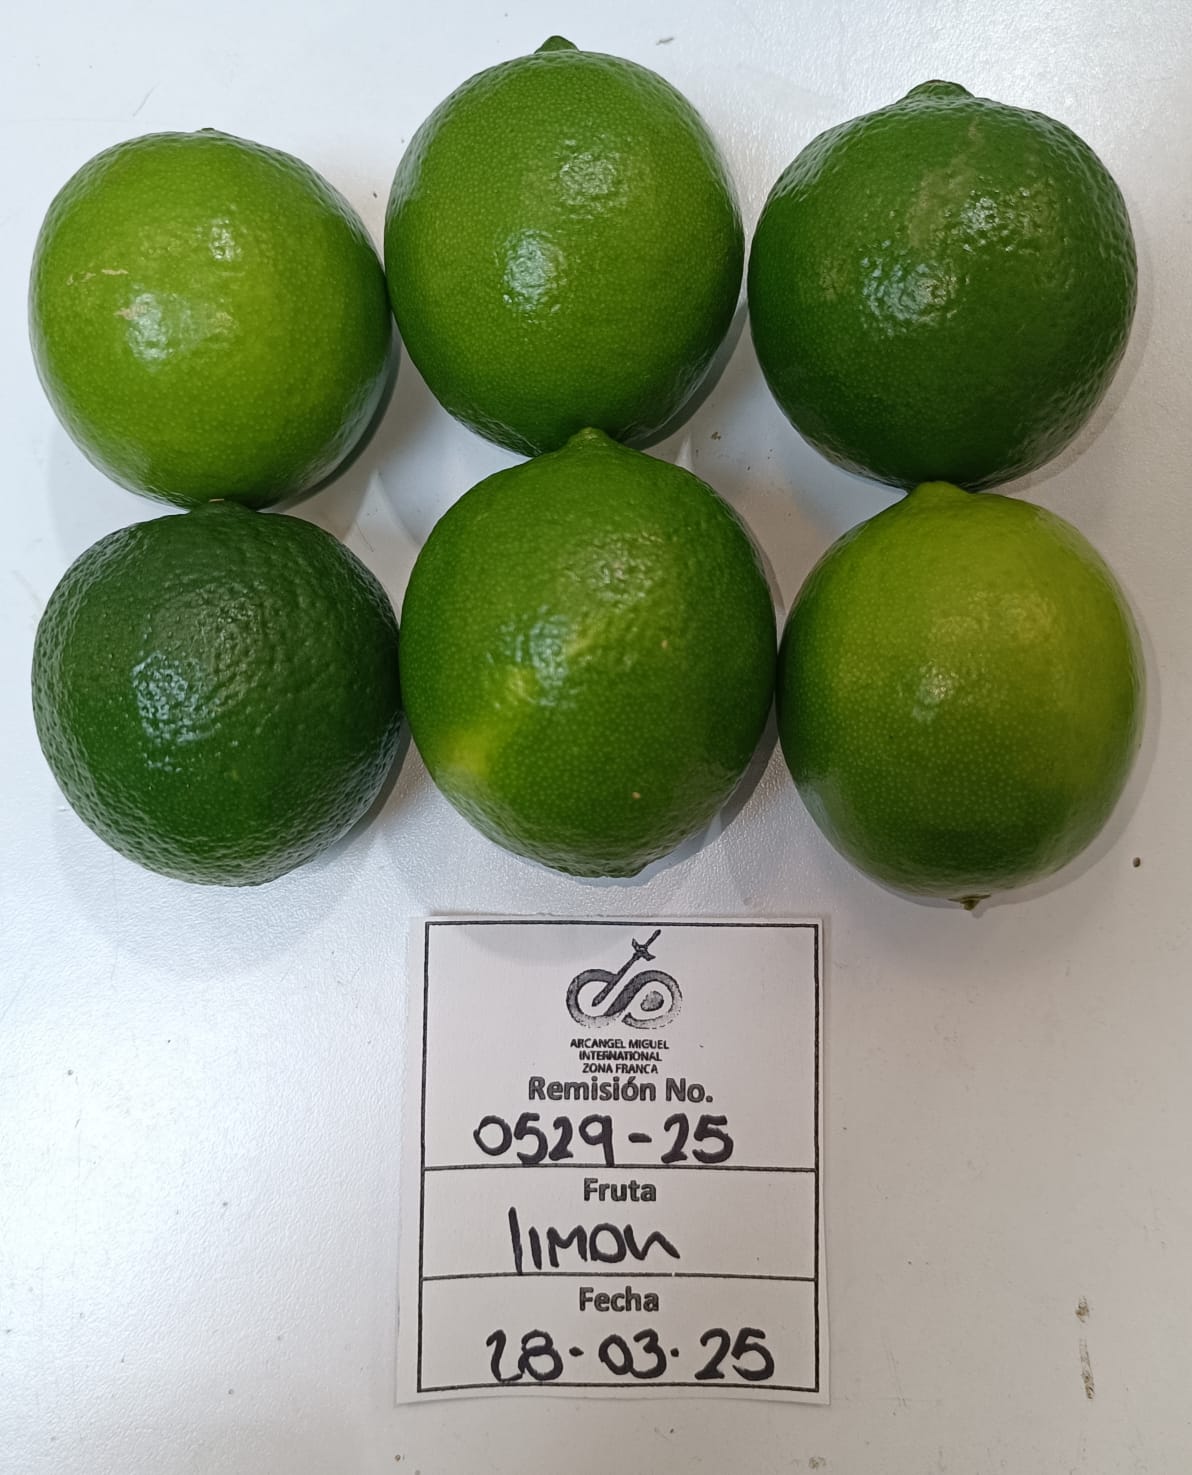 ARCANGEL MIGUEL
INTERNATIONAL
ZONA FRANCA
Remisión No.
0529-25
Fruta
limon
Fecha
28-03-25